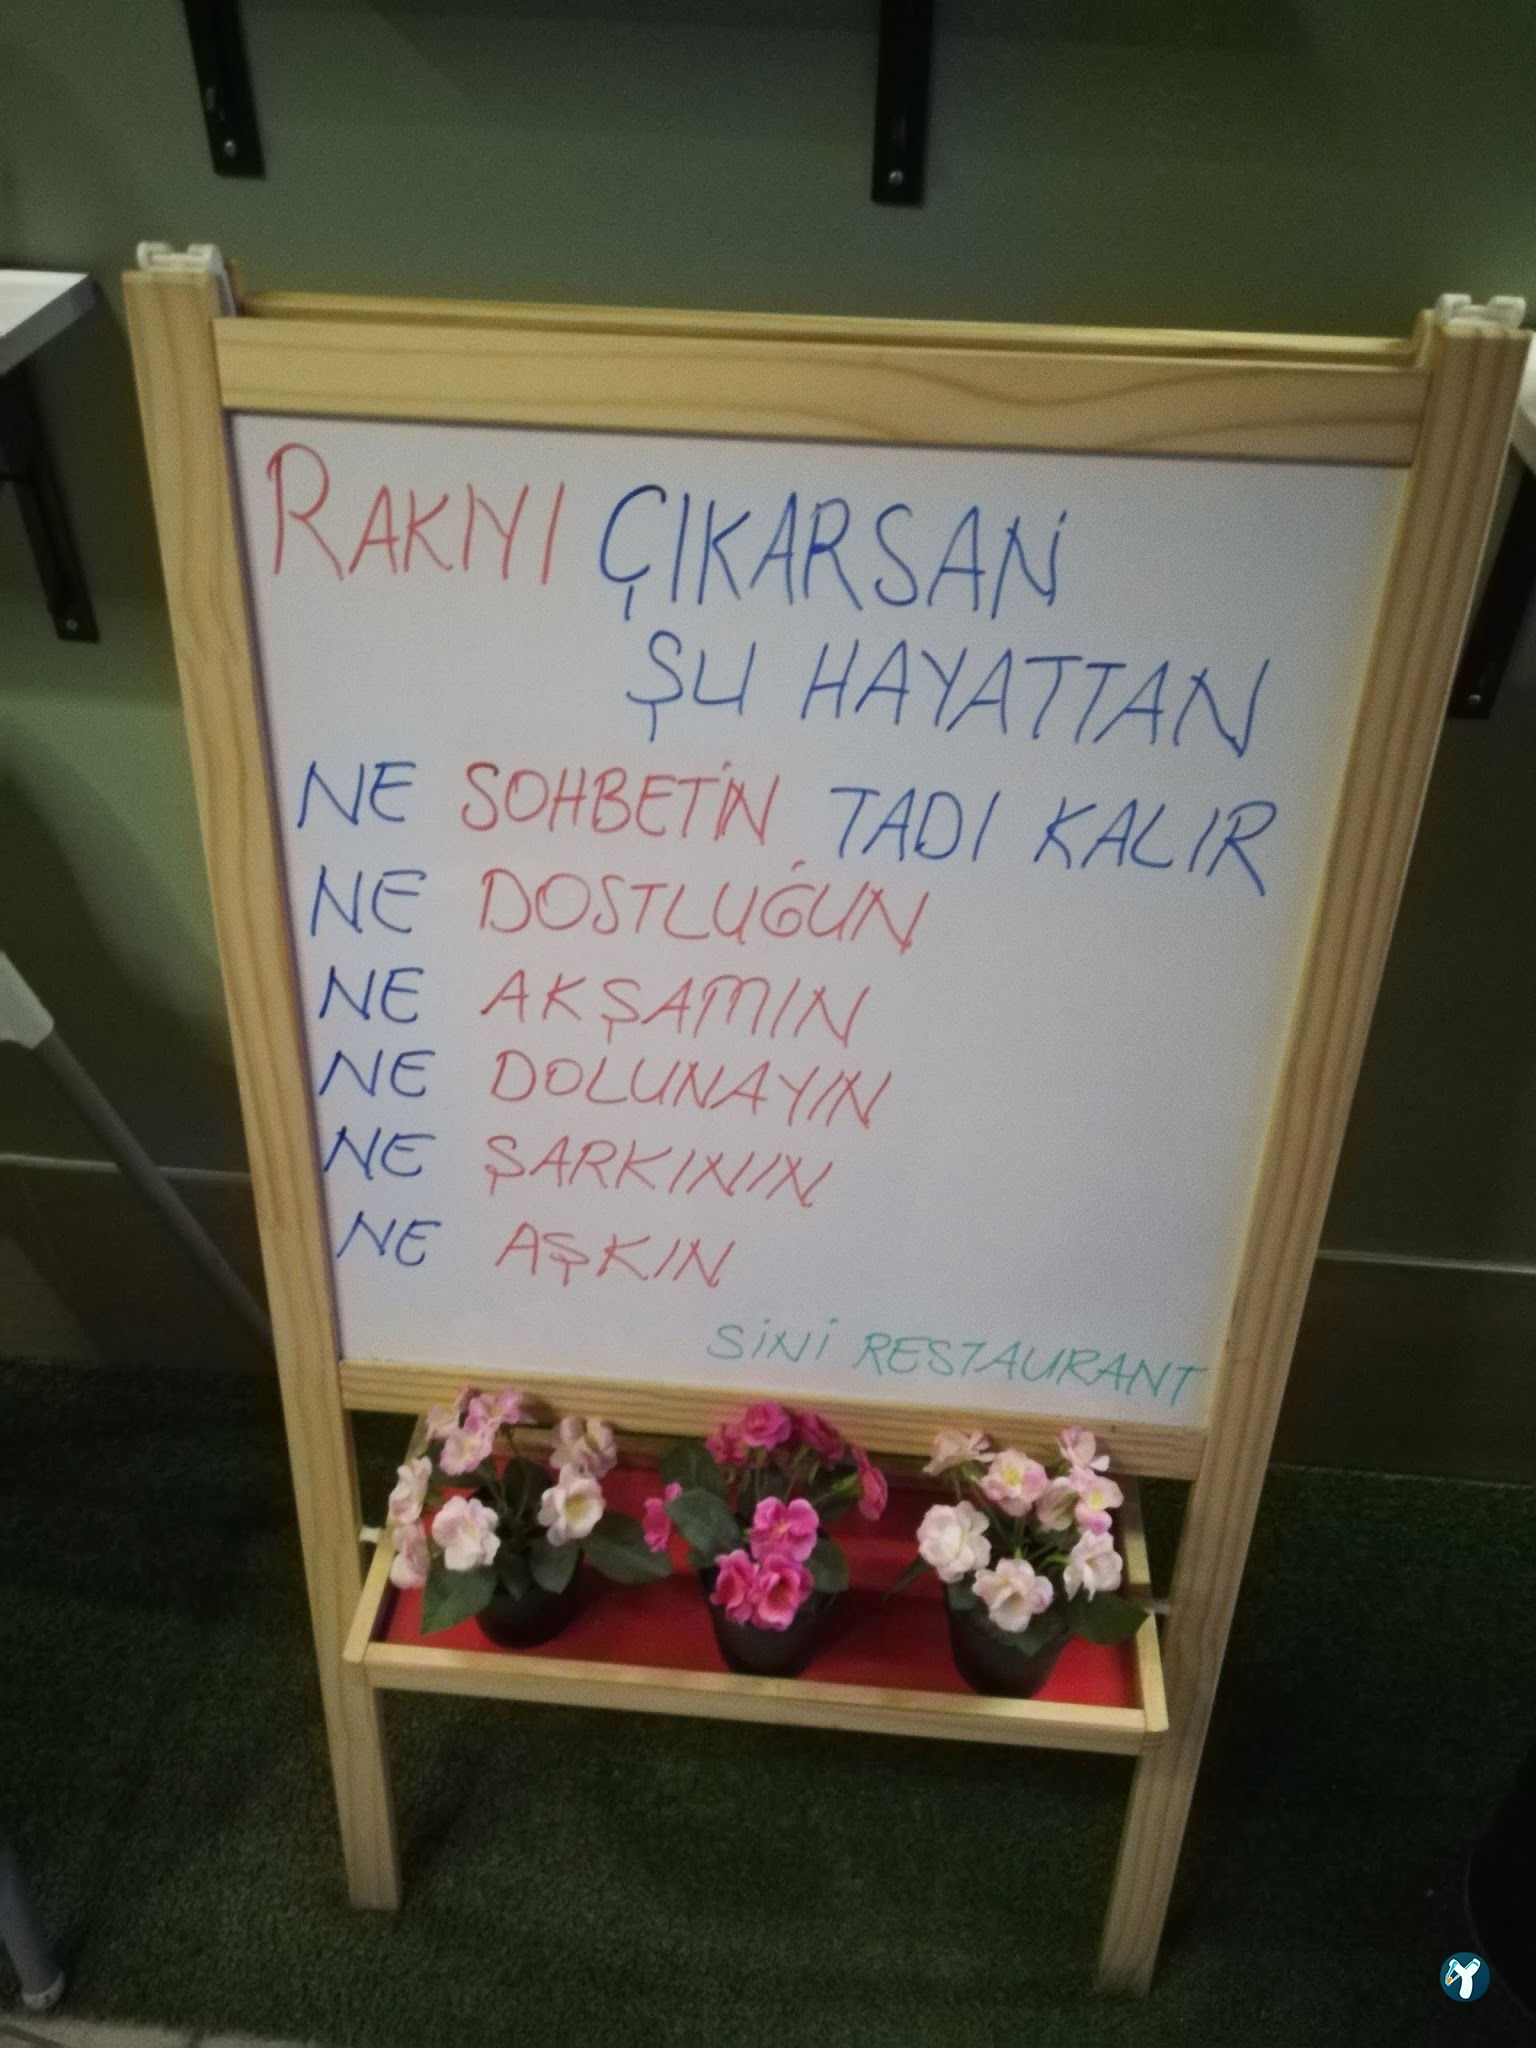 RAKIYI ÇIKARSAN
ŞU HAYATTAN
NE SOHBETİN TADI KALIR
NE DOSTLUĞUN
NE AKŞAMIN
NE DOLUNAYIN
NE ŞARKININ
NE AŞKIN
SİNİ RESTAURANT